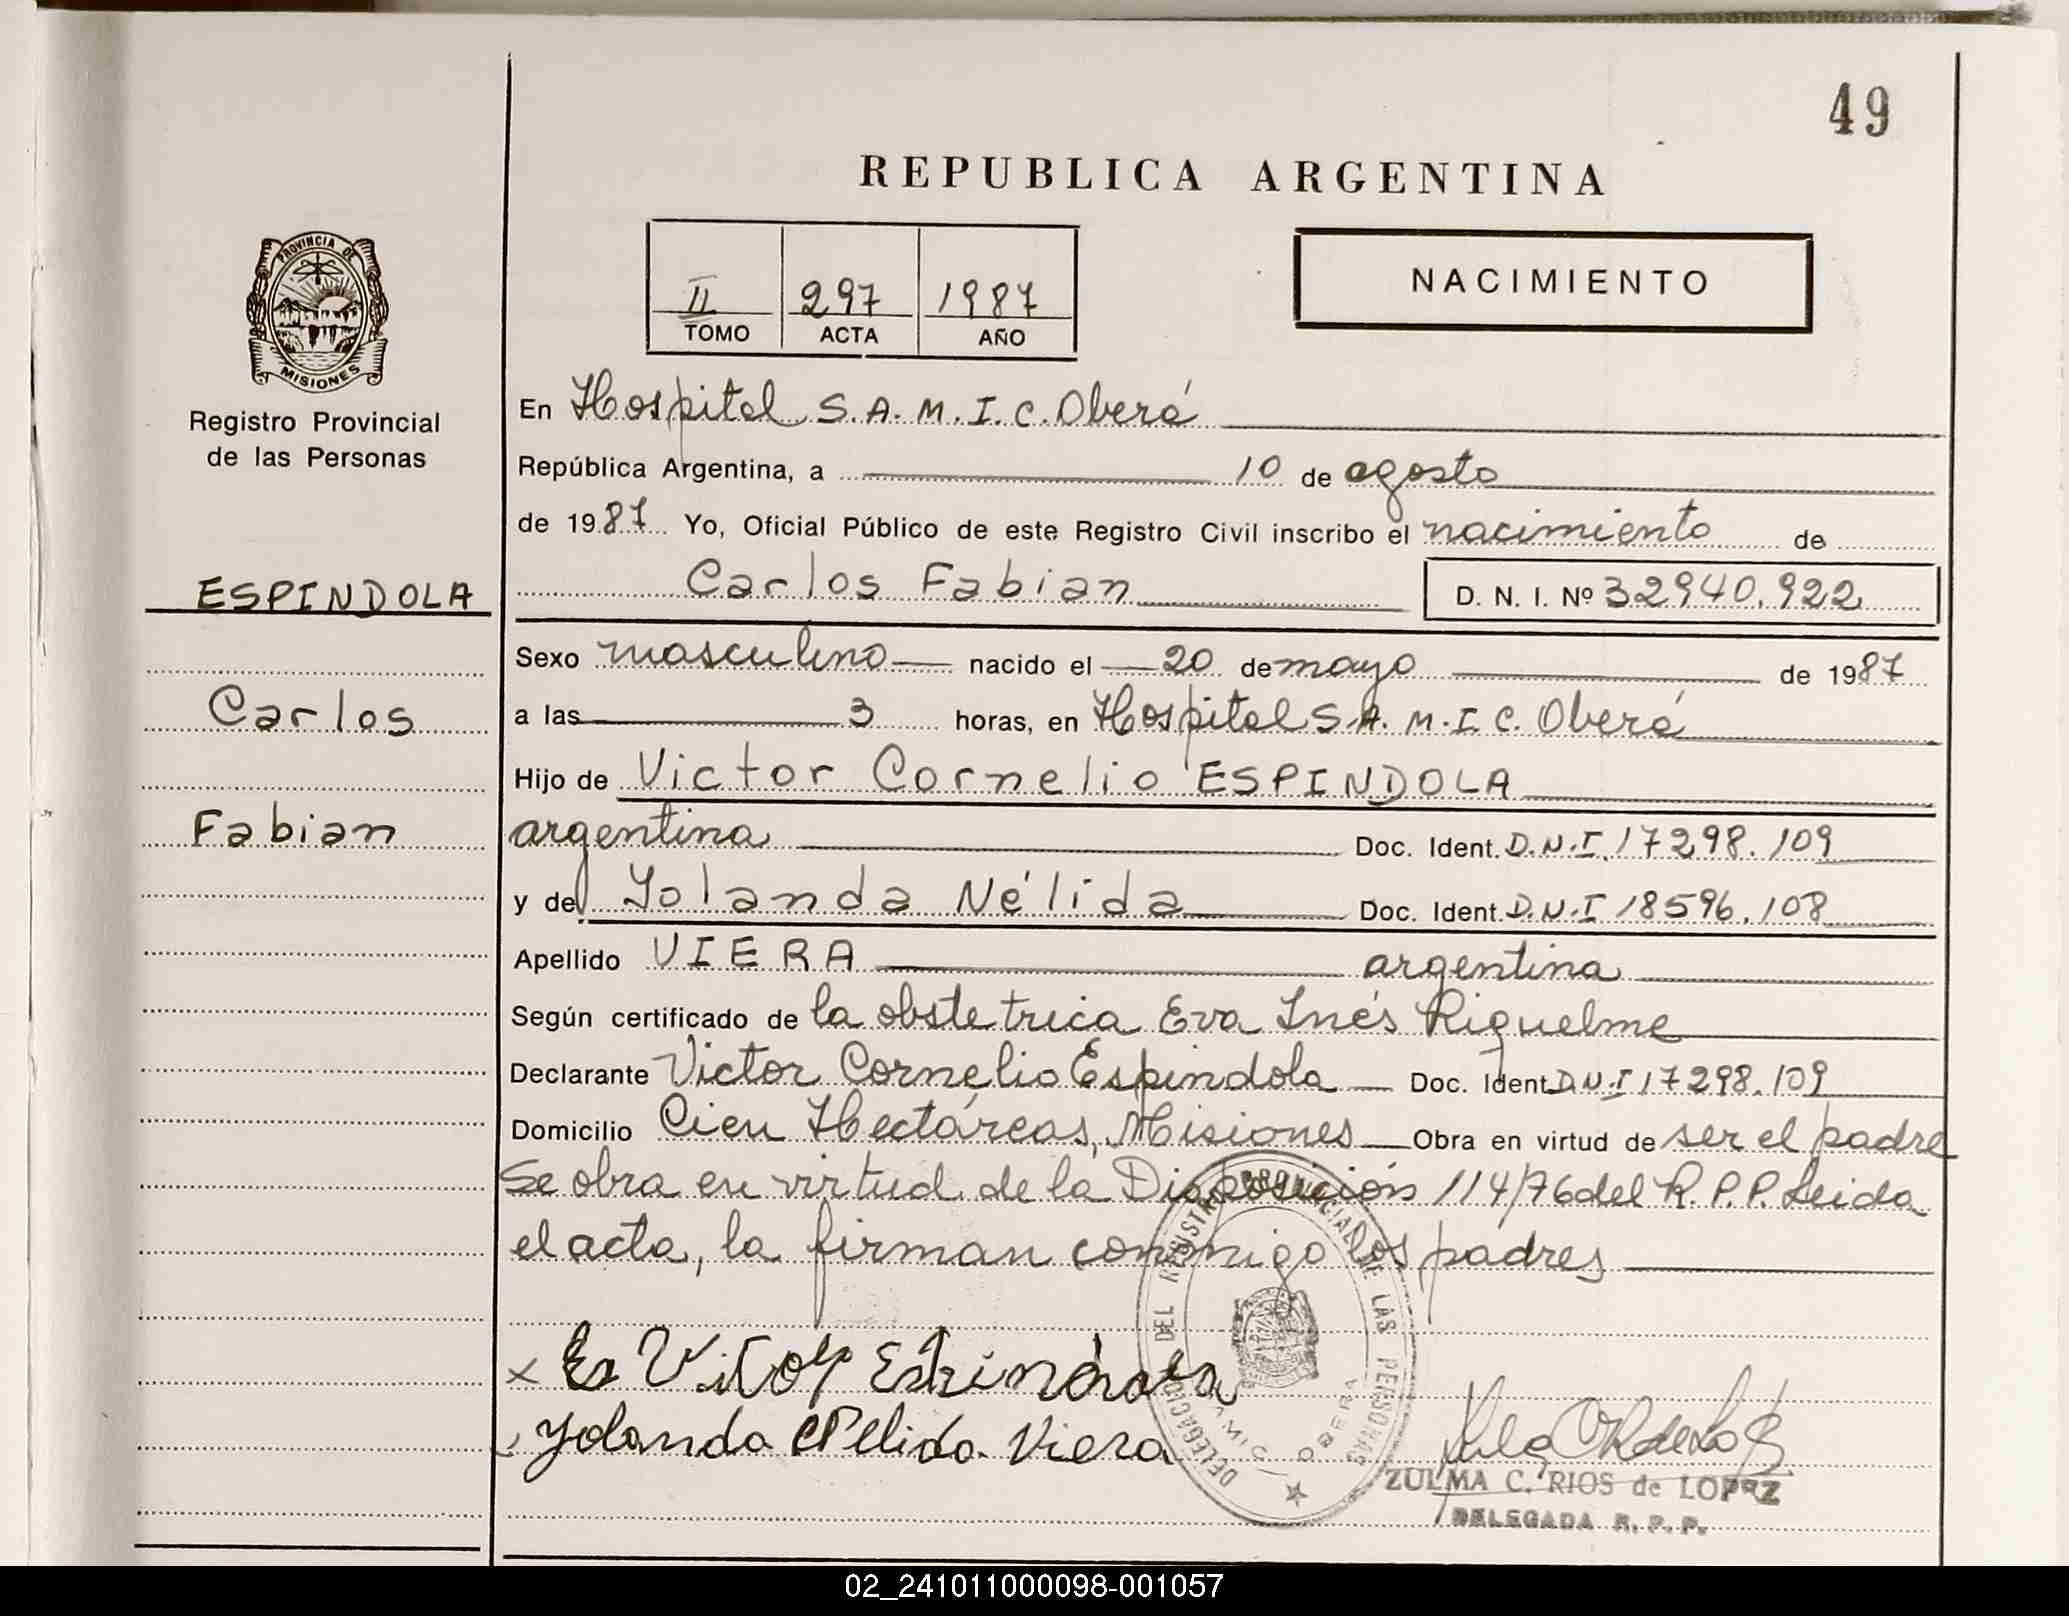 49
REPUBLICA ARGENTINA
II 297 1987
TOMO ACTA AÑO
NACIMIENTO
PROVINCIA DE
MISIONES
Registro Provincial
de las Personas
ESPINDOLA
Carlos
Fabian
En Hospital S.A.M.I.C. Oberá
República Argentina, a 10 de agosto
de 1987 Yo, Oficial Público de este Registro Civil inscribo el nacimiento de
Carlos Fabian D. N. I. Nº 32940.922
Sexo masculino nacido el 20 de mayo de 1987
a las 3 horas, en Hospital S.A.M.I.C. Oberá
Hijo de Victor Cornelio ESPINDOLA
argentina Doc. Ident. D.N.I. 17298.109
y de Yolanda Nélida Doc. Ident. D.N.I 18596.108
Apellido VIERA argentina
Según certificado de la obstetrica Eva Inés Riquelme
Declarante Victor Cornelio Espindola Doc. Ident D.N.I 17298.109
Domicilio Cien Hectáreas, Misiones Obra en virtud de ser el padre
Se obra en virtud de la Disposición 114/76 del R.P.P. Leida
el acta, la firman conmigo los padres
DELEGACION DEL REGISTRO PROVINCIAL DE LAS PERSONAS
SAMIC OBERA
Yolanda Nelida Viera
ZULMA C. RIOS de LOPEZ
DELEGADA R. P. P.
02_241011000098-001057